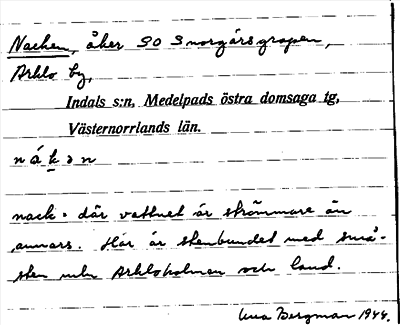 Nacken, åker SO Snorgårsgropen,
Arklo by,
Indals s:n, Medelpads östra domsaga tg,
Västernorrlands län.
nákən
nack = där vattnet är strömmare än
annars. Här är stenbundet med små-
sten mln Arkloholmen och land.
Una Bergman 1944.